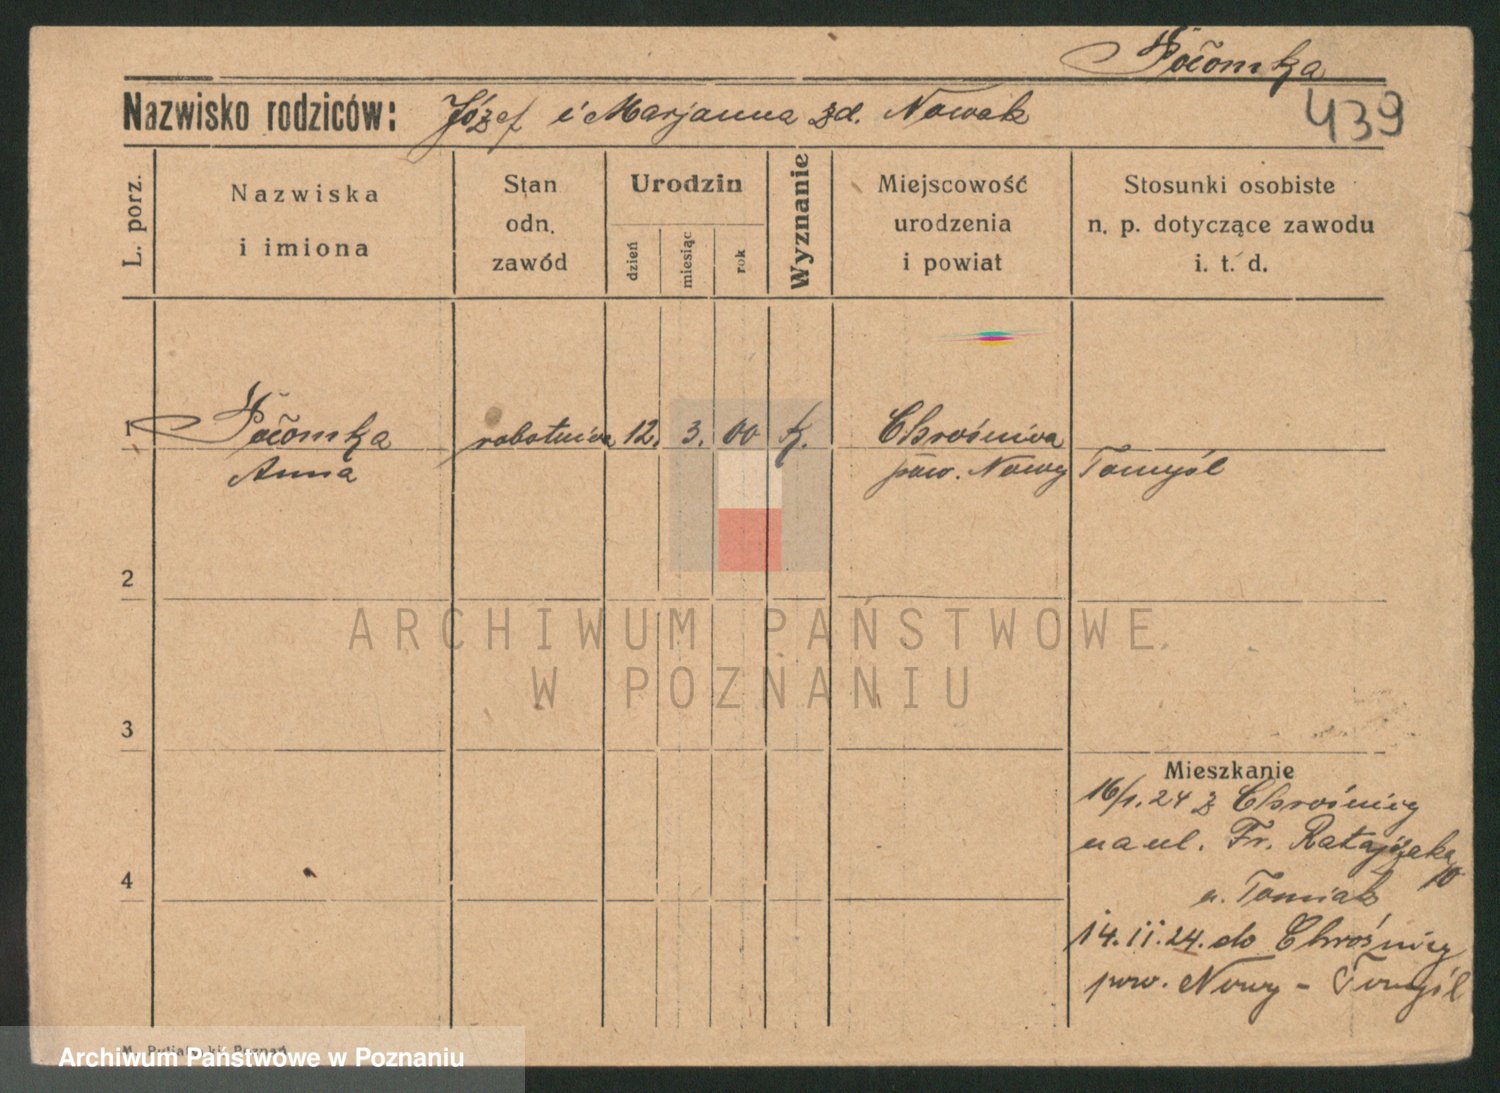 439
Nazwisko rodziców: Józef i Marjanna zd. Nowak
L. porz.
Nazwiska
i imiona
Stan
odn.
zawód
Urodzin
dzień
miesiąc
rok
Wyznanie
Miejscowość
urodzenia
i powiat
Stosunki osobiste
n. p. dotyczące zawodu
i. t. d.
1 robotnica 12. 3. 00 k. Chrośnica
Anna pow. Nowy Tomyśl
2
ARCHIWUM PAŃSTWOWE
W POZNANIU
3
Mieszkanie
16/1.24 z Chrośnicy
na ul. Fr. Ratajczaka
10
u. Tomiak
4
14.II.24. do Chrośnicy
pow. Nowy - Tomyśl
Archiwum Państwowe w Poznaniu